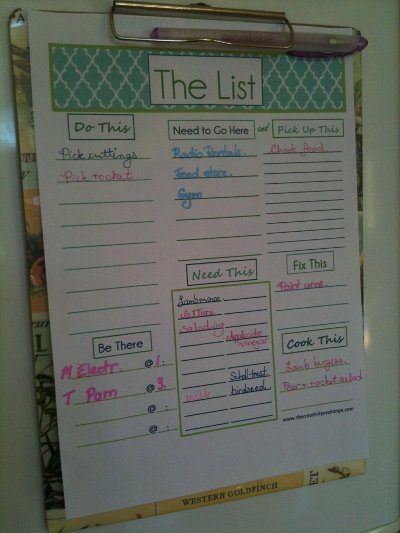 The List
Do This
Pick cuttings
Pick rocket
Need to Go Here and Pick Up This
Radio Rentals.
Feed store.
Gym
Chook food
Need This
Lamb mince.
lettuce
salad ing
Applecider
vinegar
milk
birdseed
Fix This
Paint urns.
Be There
M Electr. @ 1:
T Pam @ 3:
@ :
@ :
Cook This
Lamb burgers.
Pear & rocket salad
www.thecreativityexchange.com
WESTERN GOLDFINCH